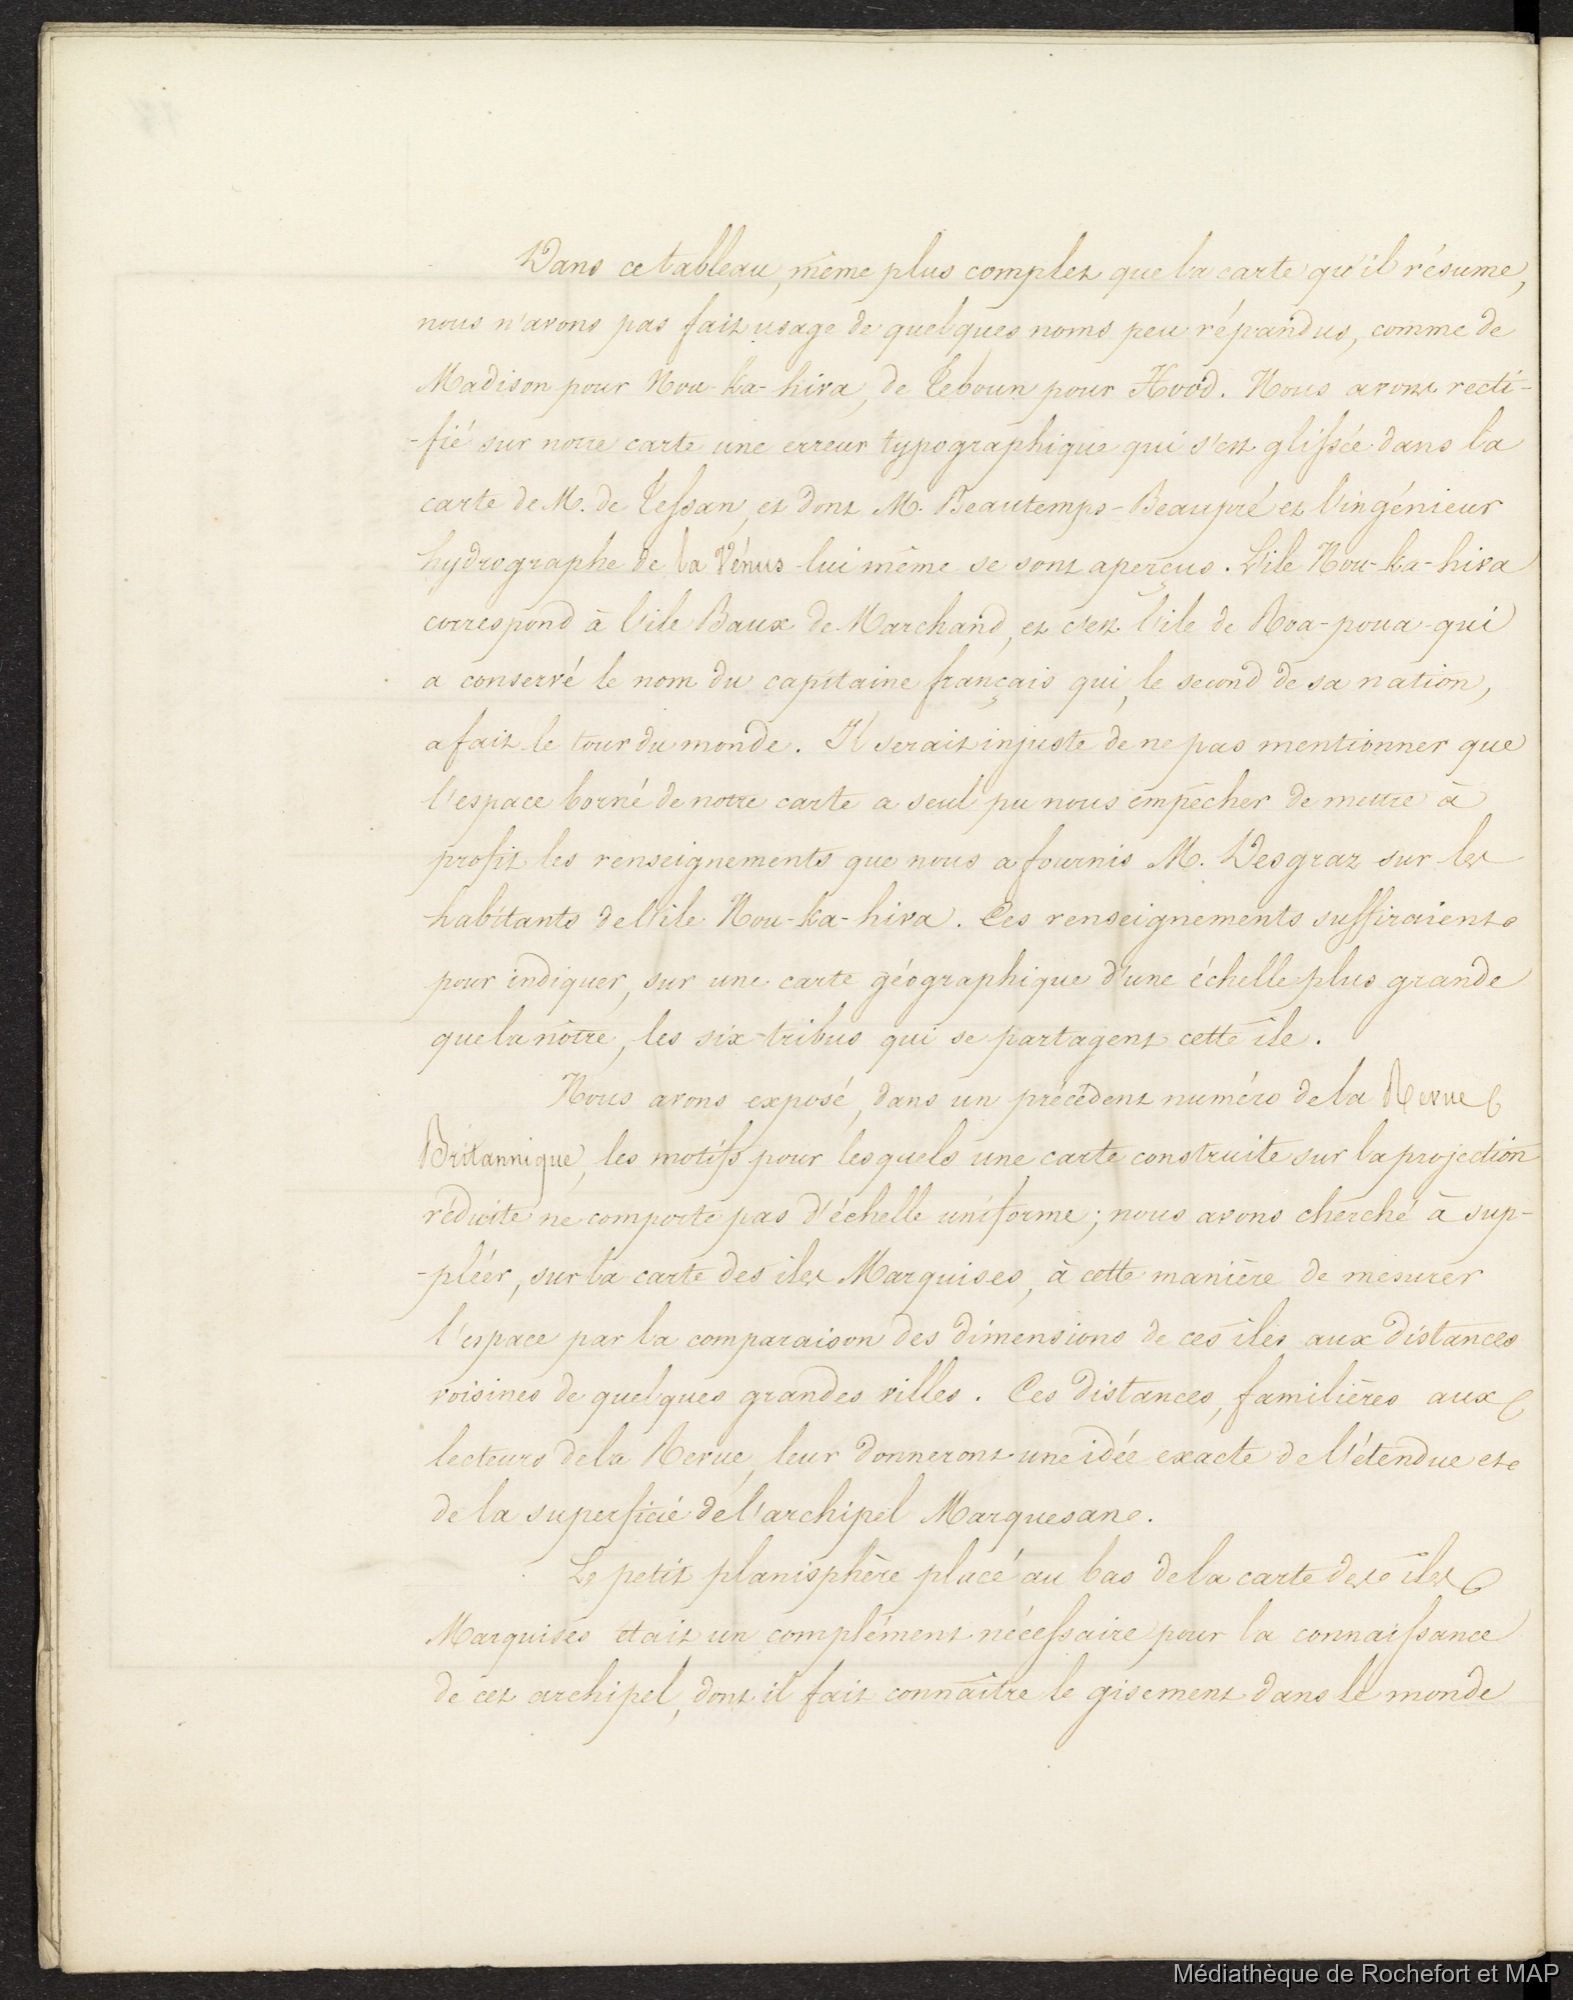 Dans ce tableau, même plus complet que la carte qu'il résume,
nous n'avons pas fait usage de quelques noms peu répandus, comme de
Madison pour Nou-ka-hiva, de Teboun pour Hood. Nous avons recti-
-fié sur notre carte une erreur typographique qui s'est glissée dans la
carte de M. de Tessan, et dont M. Beautemps-Beaupré et l'ingénieur
hydrographe de la Vénus lui même se sont aperçus. L'ile Nou-ka-hiva
correspond à l'ile Baux de Marchand, et c'est l'ile de Roa-poua qui
a conservé le nom du capitaine français qui, le second de sa nation,
a fait le tour du monde. Il serait injuste de ne pas mentionner que
l'espace borné de notre carte a seul pu nous empêcher de mettre à
profit les renseignements que nous a fournis M. Desgraz sur les
habitants de l'ile Nou-ka-hiva. Ces renseignements suffiraient
pour indiquer, sur une carte géographique d'une échelle plus grande
que la nôtre, les six tribus qui se partagent cette ile.
Nous avons exposé, dans un précédent numéro de la Revue
Britannique, les motifs pour lesquels une carte construite sur la projection
réduite ne comporte pas d'échelle uniforme; nous avons cherché à sup-
-pléer, sur la carte des iles Marquises, à cette manière de mesurer
l'espace par la comparaison des dimensions de ces iles aux distances
voisines de quelques grandes villes. Ces distances, familières aux
lecteurs de la Revue, leur donneront une idée exacte de l'étendue et
de la superficie de l'archipel Marquesan.
Le petit planisphère placé au bas de la carte des iles
Marquises était un complément nécessaire pour la connaissance
de cet archipel, dont il fait connaître le gisement dans le monde
Médiathèque de Rochefort et MAP